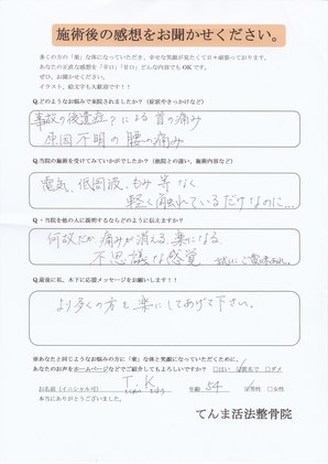 施術後の感想をお聞かせください。
多くの方の「楽」な体になっていただき、幸せな笑顔が見たくて日々頑張っております。
あなたの正直な感想を「辛口」「甘口」どんな内容でもOKです。
ぜひ、お聞かせください。
イラスト、絵文字も大歓迎です!!
Q.どのようなお悩みで来院されましたか?(症状やきっかけなど)
事故の後遺症?による首の痛み
原因不明の腰の痛み
Q.当院の施術を受けてみていかがでしたか?(他院との違い、施術内容など)
電気、低周波、もみ等なく
軽く触れているだけなのに…
Q・当院を他の人に説明するならどのように伝えますか?
何故だか痛みが消える、楽になる
不思議な感覚
Q.最後に私、木下に応援メッセージをお願いします!!
より多くの方を楽にしてあげて下さい。
※あなたと同じようなお悩みの方に「楽」な体と笑顔になっていただくために、
あなたのお声をホームページなどでご紹介してもよろしいですか? □はい □匿名で □ダメ
お名前(イニシャル可) T.K 年齢 54 □男性 □女性
本当にありがとうございました。
てんま活法整骨院